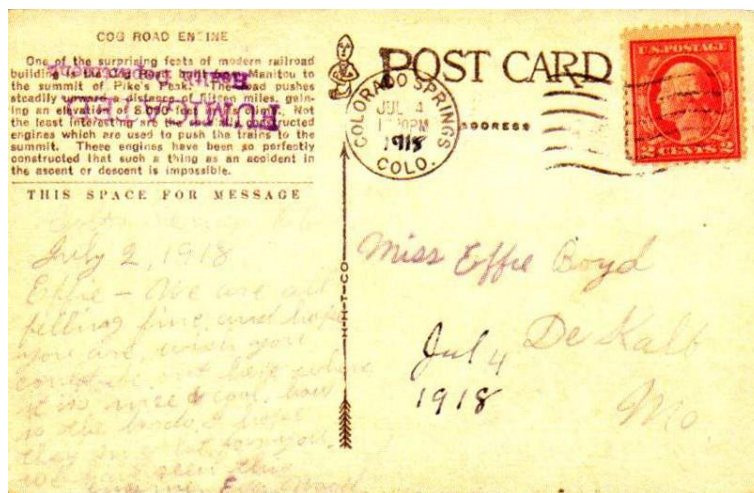 COG ROAD ENGINE
One of the surprising feats of modern railroad
building is the Cog Road, built from Manitou to
the summit of Pike's Peak. The road pushes
steadily upward a distance of fifteen miles, gain-
ing an elevation of 8,000 feet. Not
the least interesting are the constructed
engines which are used to push the trains to the
summit. These engines have been so perfectly
constructed that such a thing as an accident in
the ascent or descent is impossible.
THIS SPACE FOR MESSAGE
July 2, 1918
Effie - We are all
felling fine, and hope
you are, wish you
could be out here where
it is nice & cool, how
is the birds, I hope
they
we have seen this
POST CARD
ADDRESS
COLORADO SPRINGS
JUL 4
PM
1918
COLO.
U.S. POSTAGE
2 CENTS 2
Miss Effie Boyd
De Kalb
Mo.
Jul 4
1918
H-H-T-CO